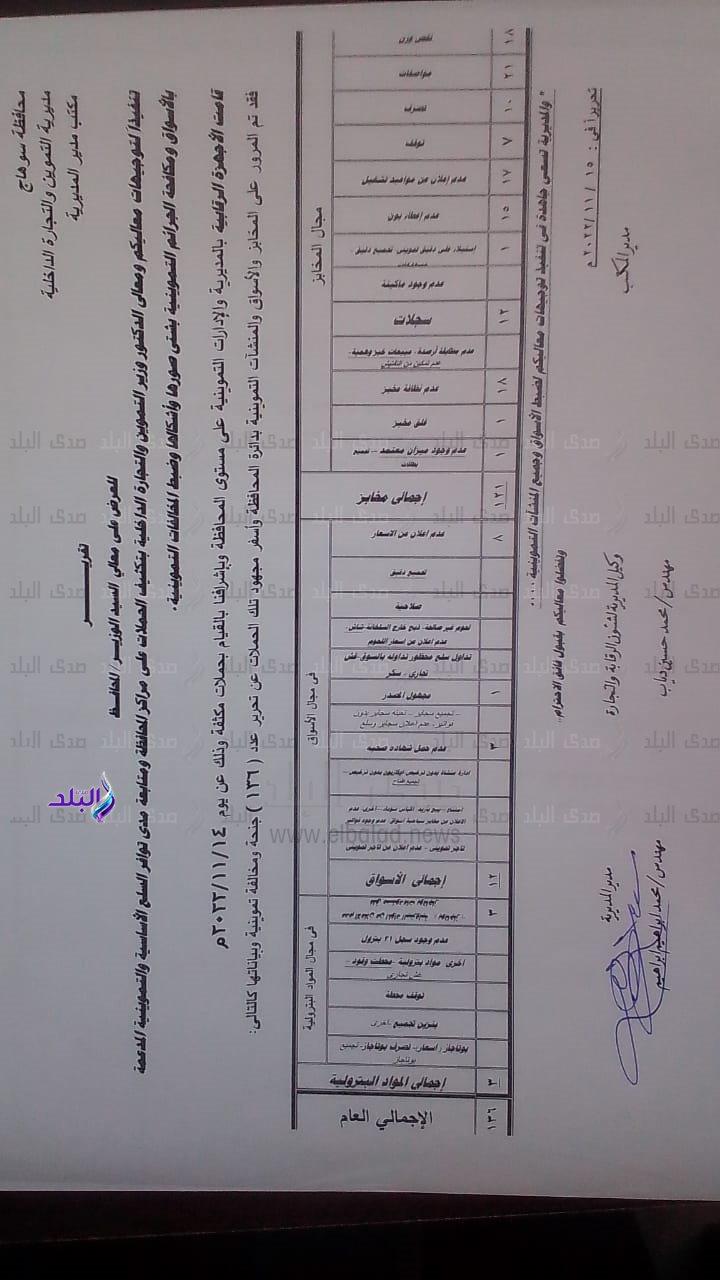 محافظة سوهاج
مديرية التموين والتجارة الداخلية
مكتب مدير المديرية
تقريـــــــر
للعرض على معالي السيد الوزير / المحافظ
تنفيذا لتوجيهات معاليكم ومعالى الدكتور وزير التموين والتجارة الداخلية بتكثيف الحملات على مراكز المحافظة ومتابعة مدى توافر السلع الأساسية والتموينية المدعمة
بالأسواق ومكافحة الجرائم التموينية بشتى صورها وأشكالها وضبط المخالفات التموينية .
قامت الأجهزة الرقابية بالمديرية والإدارات التموينية على مستوى المحافظة وبإشرافنا بالقيام بحملات مكثفة وذلك عن يوم ٢٠٢٢/١١/١٤م
فقد تم المرور على المخابز والأسواق والمنشآت التموينية بدائرة المحافظة وأسفر مجهود تلك الحملات عن تحرير عدد ( ١٣٦ ) جنحة ومخالفة تموينية وبياناتها كالتالى :
مجال المخابز
نقص وزن ١٨
مواصفات ٢١
تصرف ١٠
توقف ٧
عدم إعلان عن مواعيد تشغيل ١٧
عدم إعطاء بون ١٥
استيلاء على دقيق تموينى - تجميع دقيق - ١
عدم وجود ماكينة
سجلات ١٢
عدم مطابقة أرصدة - مبيعات خبز وهمية -
عدم تمكين من التفتيش
عدم نظافة مخبز ١٨
غلق مخبز ١
عدم وجود ميزان معتمد – تجميع ١
بطاقات
إجمالى مخابز ١٢١
فى مجال الأسواق
عدم إعلان عن الأسعار ٨
تجميع دقيق
صلاحية
لحوم غير صالحة - ذبح خارج السلخانة -
عدم إعلان عن أسعار اللحوم
تداول سلع محظور تداوله بالسوق - غش
تجارى - سكر
مجهول المصدر ١
– تجميع سجاير – تعبئه سجاير بدون
فواتير - عدم إعلان سجاير وسلع
عدم حمل شهاده صحيه ٣
ادارة منشأة بدون ترخيص – بدون ترخيص –
تجميع
تاجر تموينى – عدم اعلان عن تاجر تموينى
إجمالى الأسواق ١٢
فى مجال المواد البترولية
٣
عدم وجود سجل ٢١ بترول
اخرى - مواد بترولية - محطات وقود -
غش تجارى
توقف محطة
بنزين تجميع - اخرى
بوتاجاز / اسعار - تصرف بوتاجاز - تجميع
بوتاجاز
إجمالى المواد البترولية ٣
الإجمالي العام ١٣٦
" والمديرية تسعى جاهدة فى تنفيذ توجيهات معاليكم لضبط الأسواق وجميع المنشآت التموينية ....
وتفضلوا معاليكم بقبول فائق الاحترام،،
تحريرا في : ١٥ / ١١ / ٢٠٢٢م
مدير المكتب
وكيل المديرية لشئون الرقابة والتجارة
مهندس / محمد حسين دياب
مدير المديرية
مهندس / محمد ابراهيم ابراهيم
صدى البلد
www.elbalad.news